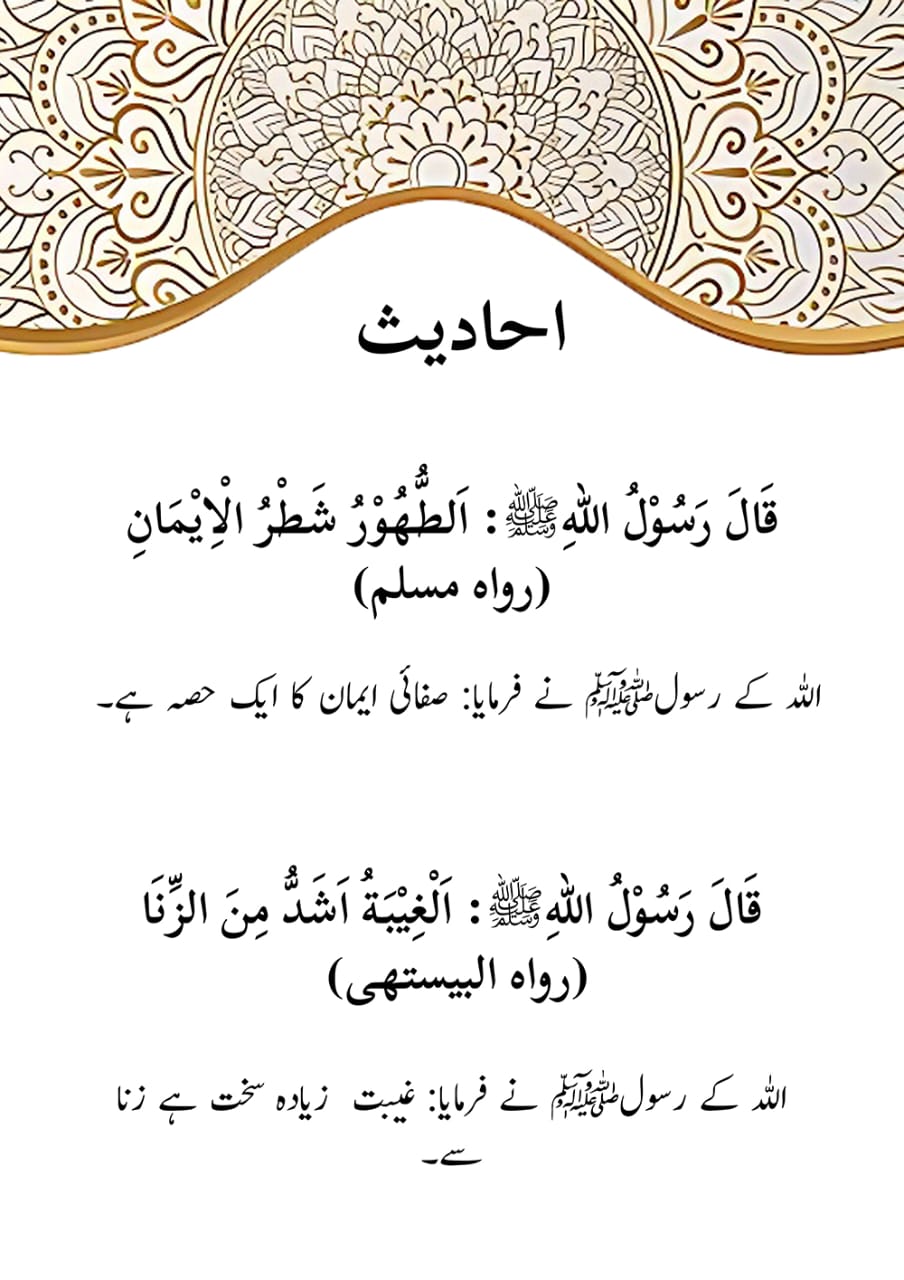 احادیث
قَالَ رَسُوْلُ اللهِﷺ: اَلطُّهُوْرُ شَطْرُ الْاِیْمَانِ
(رواه مسلم)
اللہ کے رسولﷺ نے فرمایا: صفائی ایمان کا ایک حصہ ہے۔
قَالَ رَسُوْلُ اللهِﷺ: اَلْغِیْبَةُ اَشَدُّ مِنَ الزِّنَا
(رواه البیستھی)
اللہ کے رسولﷺ نے فرمایا: غیبت زیادہ سخت ہے زنا
سے۔